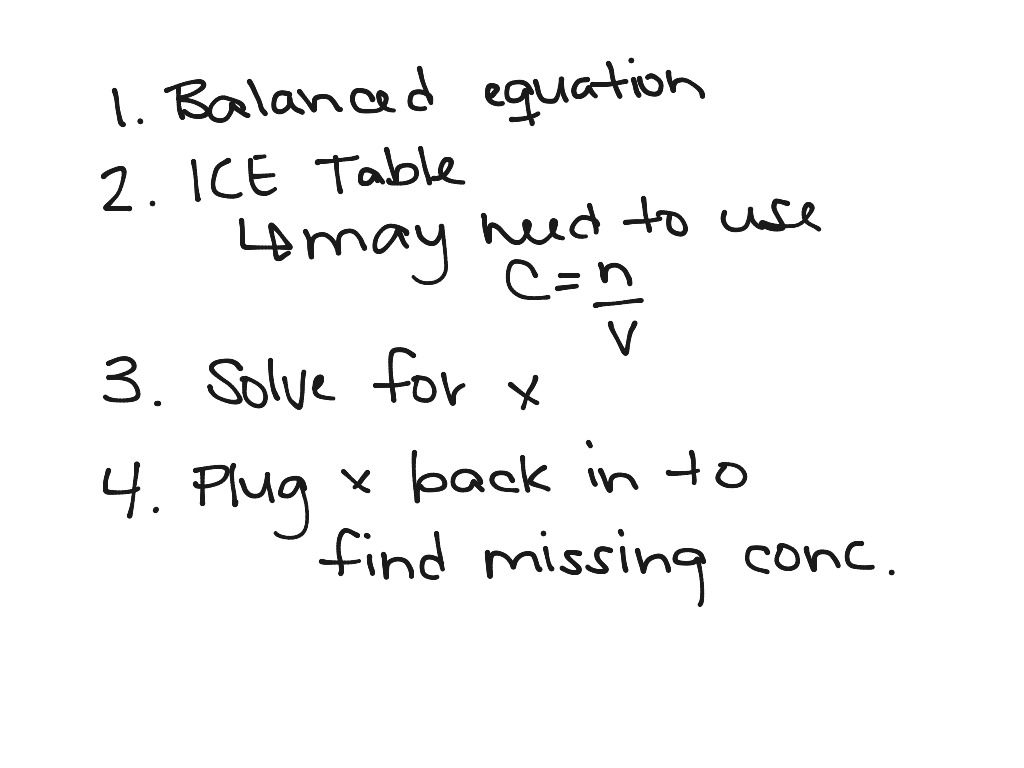 1. Balanced equation
2. ICE Table
↳ may need to use
C = n/V
3. Solve for x
4. Plug x back in to
find missing conc.